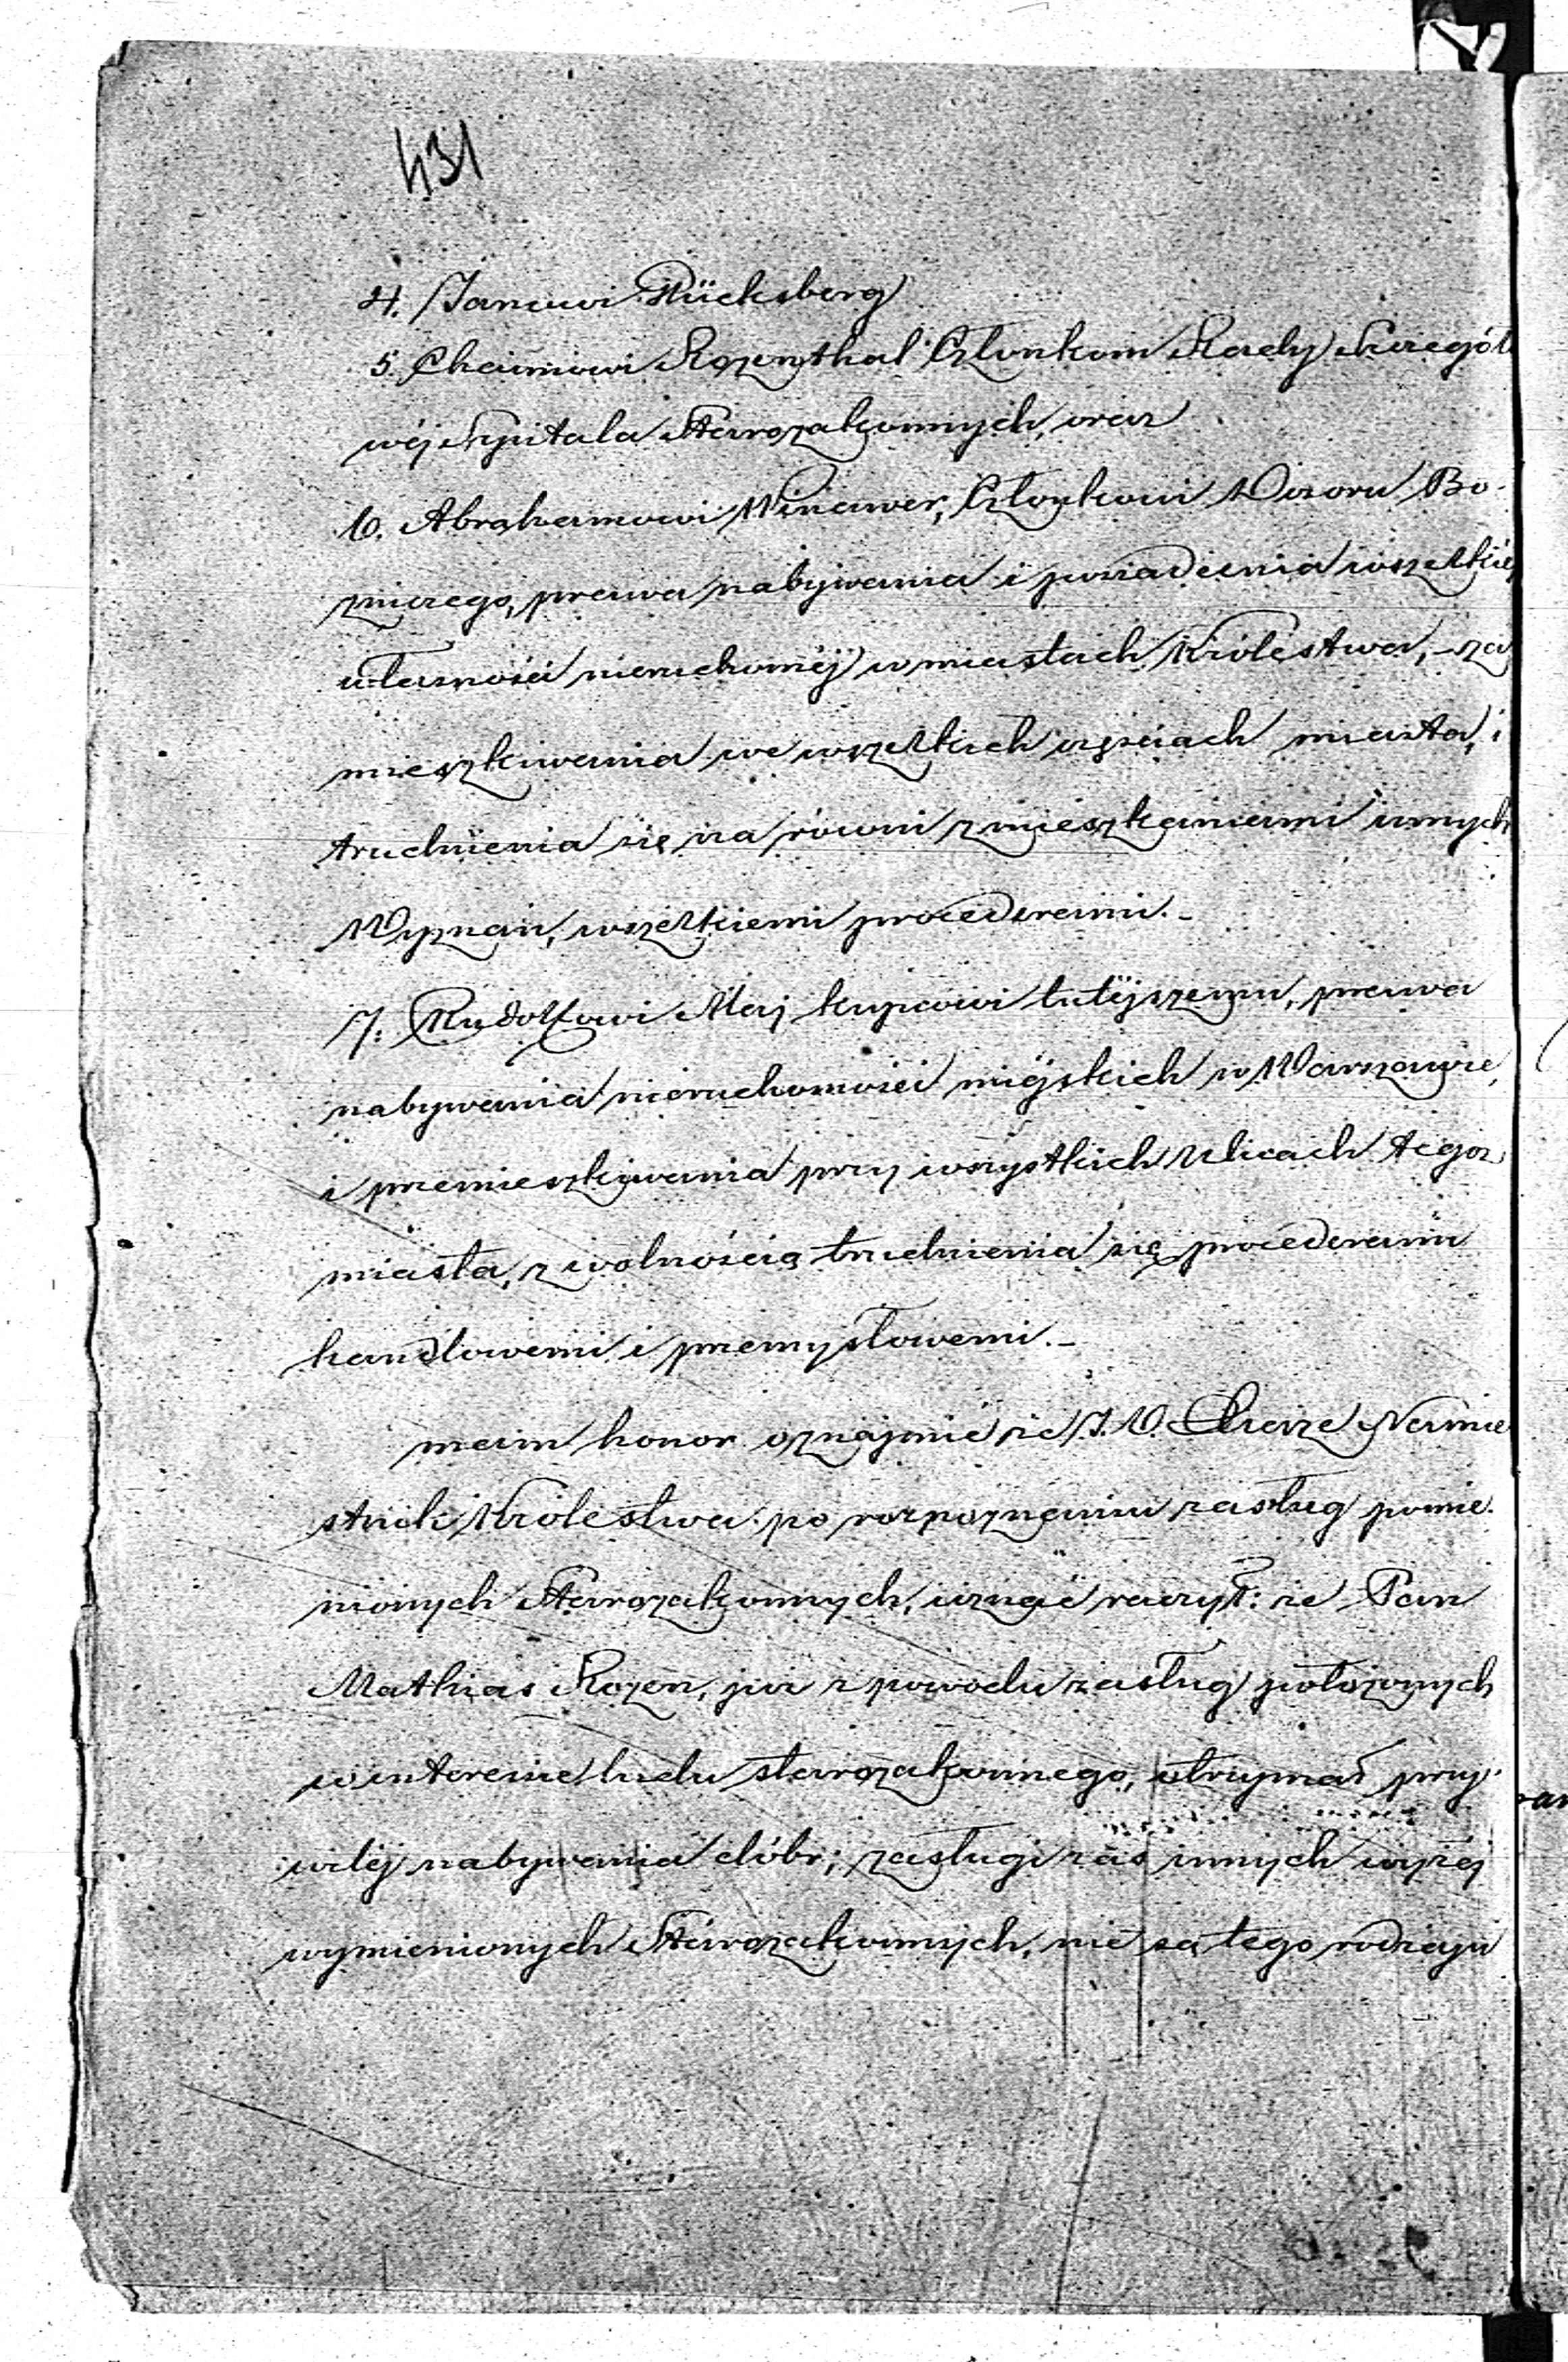 431
4. Janowi Glücksberg
5. Chaimowi Rozenthal Członkom Rady Szczegóło
wéj Szpitala Starozakonnych, oraz
6. Abrahamowi Winawer, Członkowi Dozoru Bo-
zniczego, prawa nabywania i posiadania wszelkiéj
własności nieruchoméj w miastach Królestwa, za
mieszkiwania we wszelkich częściach miasta, i
trudnienia się na równi z mieszkańcami innych
Wyznań, wszelkiemi procederami.-
7. Rudolfowi Maj kupcowi tutéjszemu, prawa
nabywania nieruchomości miéjskich w Warszawie,
i przemieszkiwania przy wszystkich Ulicach tegoż
miasta, z wolnością trudnienia się procederami
handlowemi i przemysłowemi.-
mam honor oznajmić że J. O. Xiąże Namie
stnik Królestwa po rozpoznaniu zasług pomie
nionych Starozakonnych, uznać raczył: że Pan
Mathias Rozen, już z powodu zasług położonych
w interesie ludu starozakonnego, otrzymał przy-
wiléj nabywania dóbr; zasługi zaś innych wyżéj
wymienionych Starozakonnych, nie są tego rodzaju